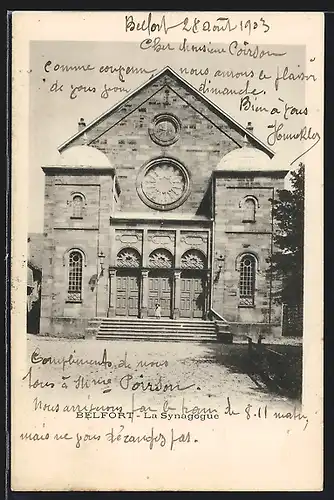 Belfort 28 août 1903
Cher Monsieur Poirson
Comme convenu, nous aurons le plaisir
de vous voir dimanche.
Bien à vous
Compliments de nous
tous à Mme Poirson.
Nous arriverons par le train de 8.11 matin,
mais ne vous dérangez pas.
BELFORT - La Synagogue